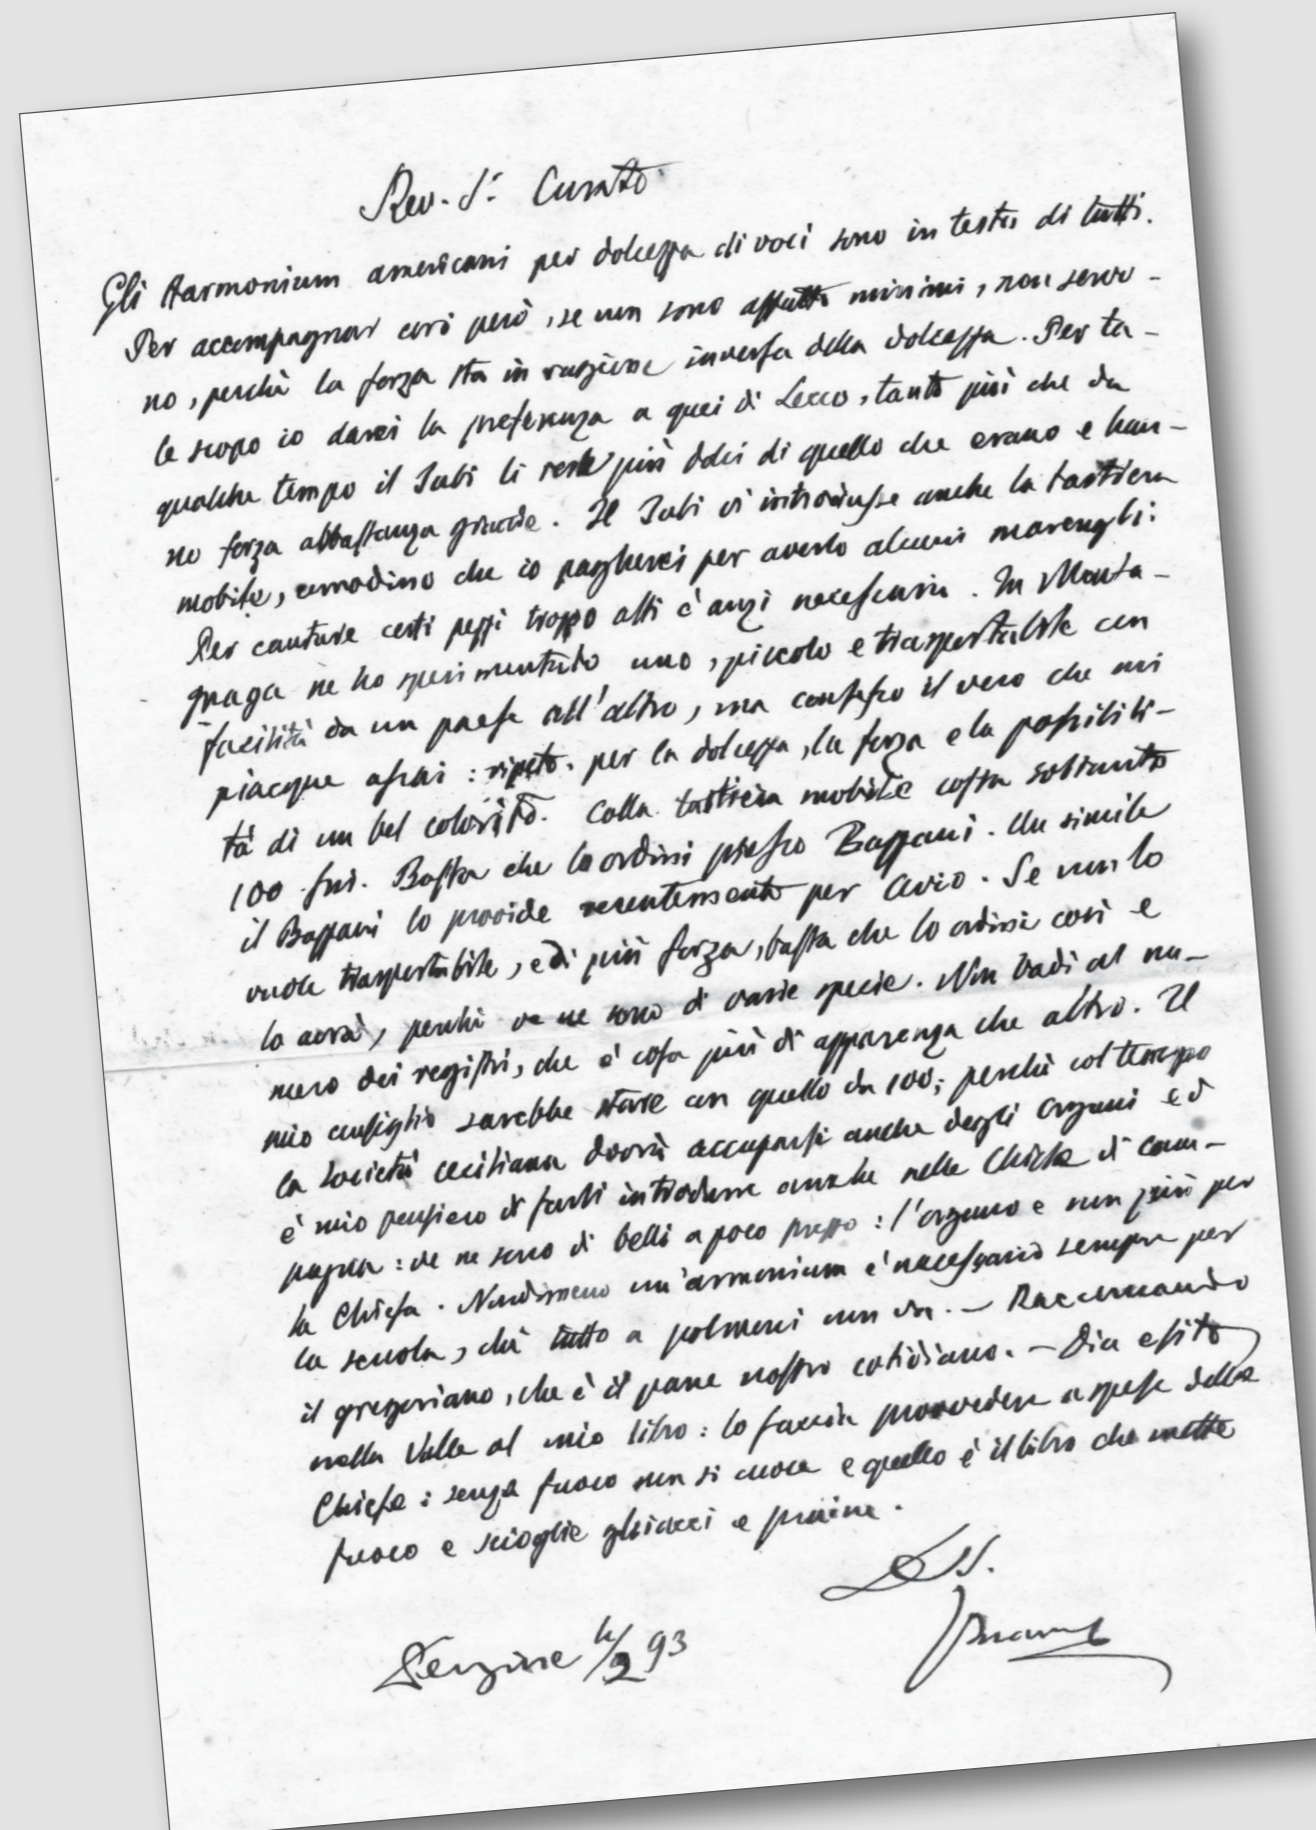 Rev. S.r Curato
Gli Harmonium americani per dolcezza di voci sono in testa di tutti.
Per accompagnar cori però, se non sono affatto minimi, non servo-
no, perchè la forza sta in ragione inversa della dolcezza. Per ta-
le scopo io darei la preferenza a quei di Lecco, tanto più che da
qualche tempo il Tubi li rese più dolci di quello che erano e han-
no forza abbastanza grande. Il Tubi vi introdusse anche la tastiera
mobile, comodino che io pagherei per averlo alcuni marenghi:
Per cantare certi pezzi troppo alti è anzi necessaria. In Monta-
gnaga ne ho sperimentato uno, piccolo e trasportabile con
facilità da un paese all'altro, ma confesso il vero che mi
piacque assai: ripeto. per la dolcezza, la forza e la possibili-
tà di un bel colorito. Colla tastiera mobile costa soltanto
100 fni. Basta che lo ordini presso Bazzani. Un simile
il Bazzani lo provide recentemente per Avio. Se non lo
vuole trasportabile, e di più forza, basta che lo ordini così e
lo avrà, perchè ve ne sono di varie specie. Non badi al nu-
mero dei registri, che è cosa più di apparenza che altro. Il
mio consiglio sarebbe stare con quello da 100; perchè col tempo
la Società ceciliana dovrà accuparsi anche degli organi ed
è mio pensiero di farli introdurre anche nelle Chiese di cam-
pagna: ve ne sono di belli a poco prezzo: l'organo e non più per
la Chiesa. Nondimeno un'armonium è necessario sempre per
la scuola, chè tutto a polmoni non va. — Raccomando
il gregoriano, che è il pane nostro cotidiano. — Dia esito
nella Valle al mio libro: lo faccia provvedere a spese della
Chiesa: senza fuoco non si cuoce e quello è il libro che mette
fuoco e scioglie ghiacci e praine.
Pergine 4/2 93